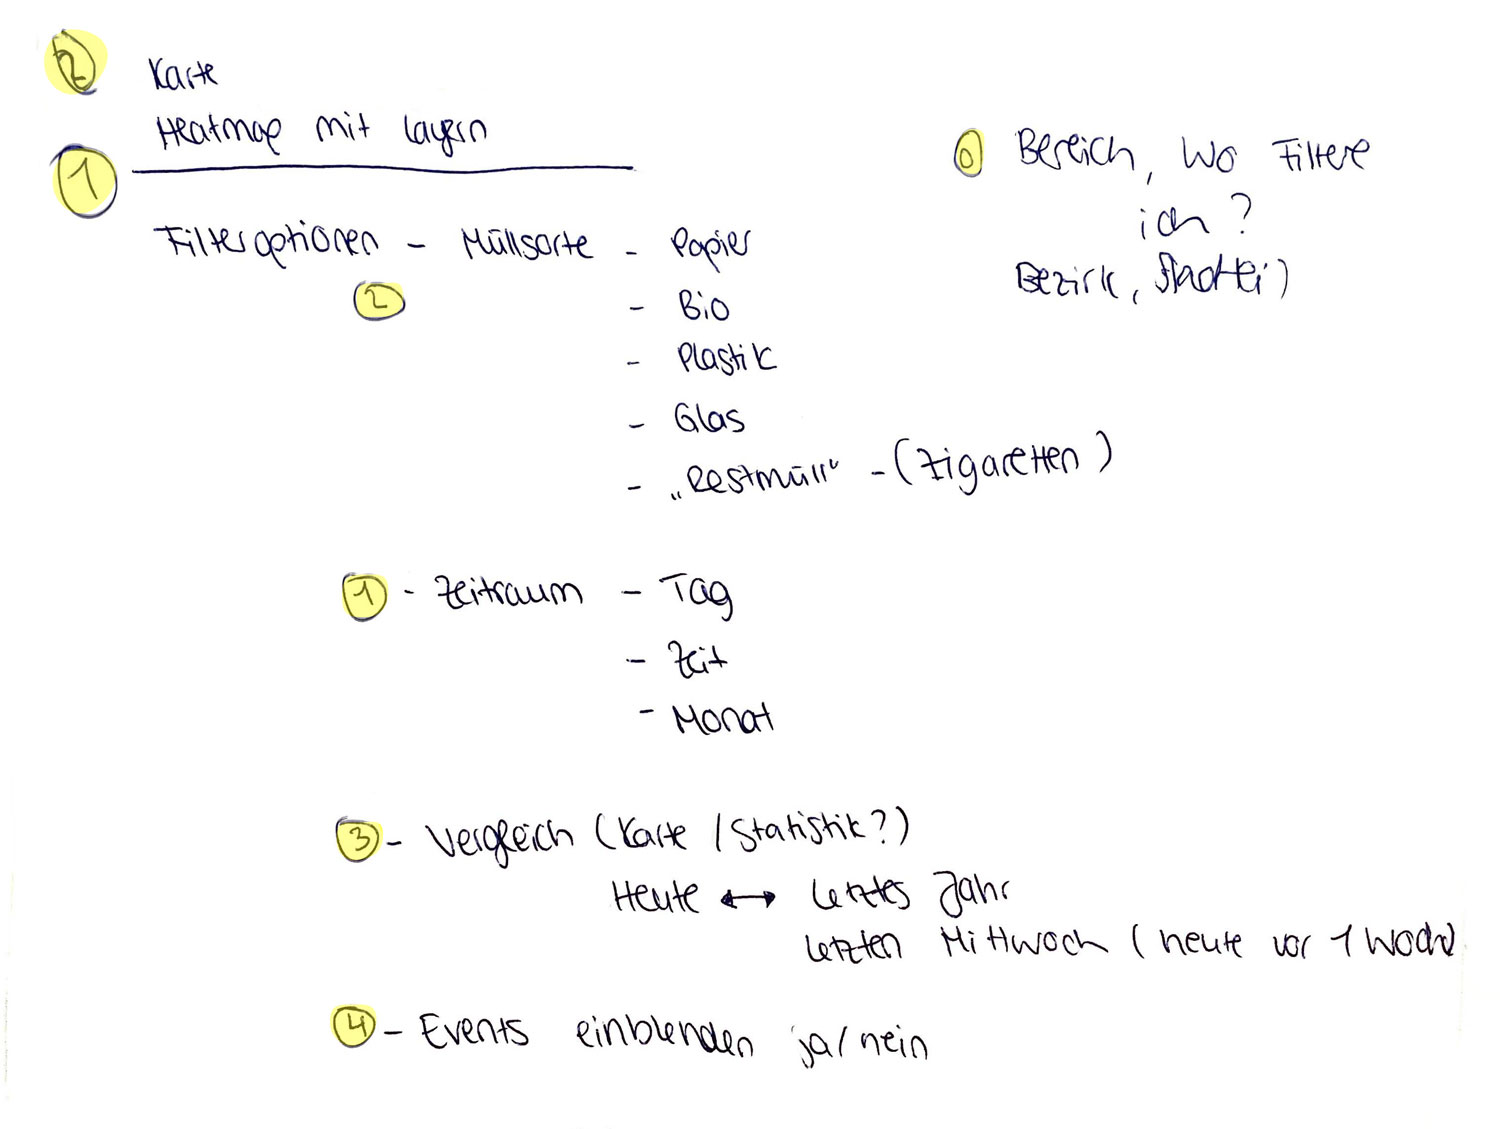 2 Karte
Heatmap mit Layern
1
0 Bereich, wo Filtere
ich?
Bezirk, Stadttei)
Filteroptionen - Müllsorte - Papier
2 - Bio
- Plastik
- Glas
- „Restmüll“ - (Zigaretten)
1 - Zeitraum - Tag
- Zeit
- Monat
3 - Vergleich (Karte / Statistik?)
Heute ↔ letztes Jahr
letzten Mittwoch (heute vor 1 Woche)
4 - Events einblenden ja/nein